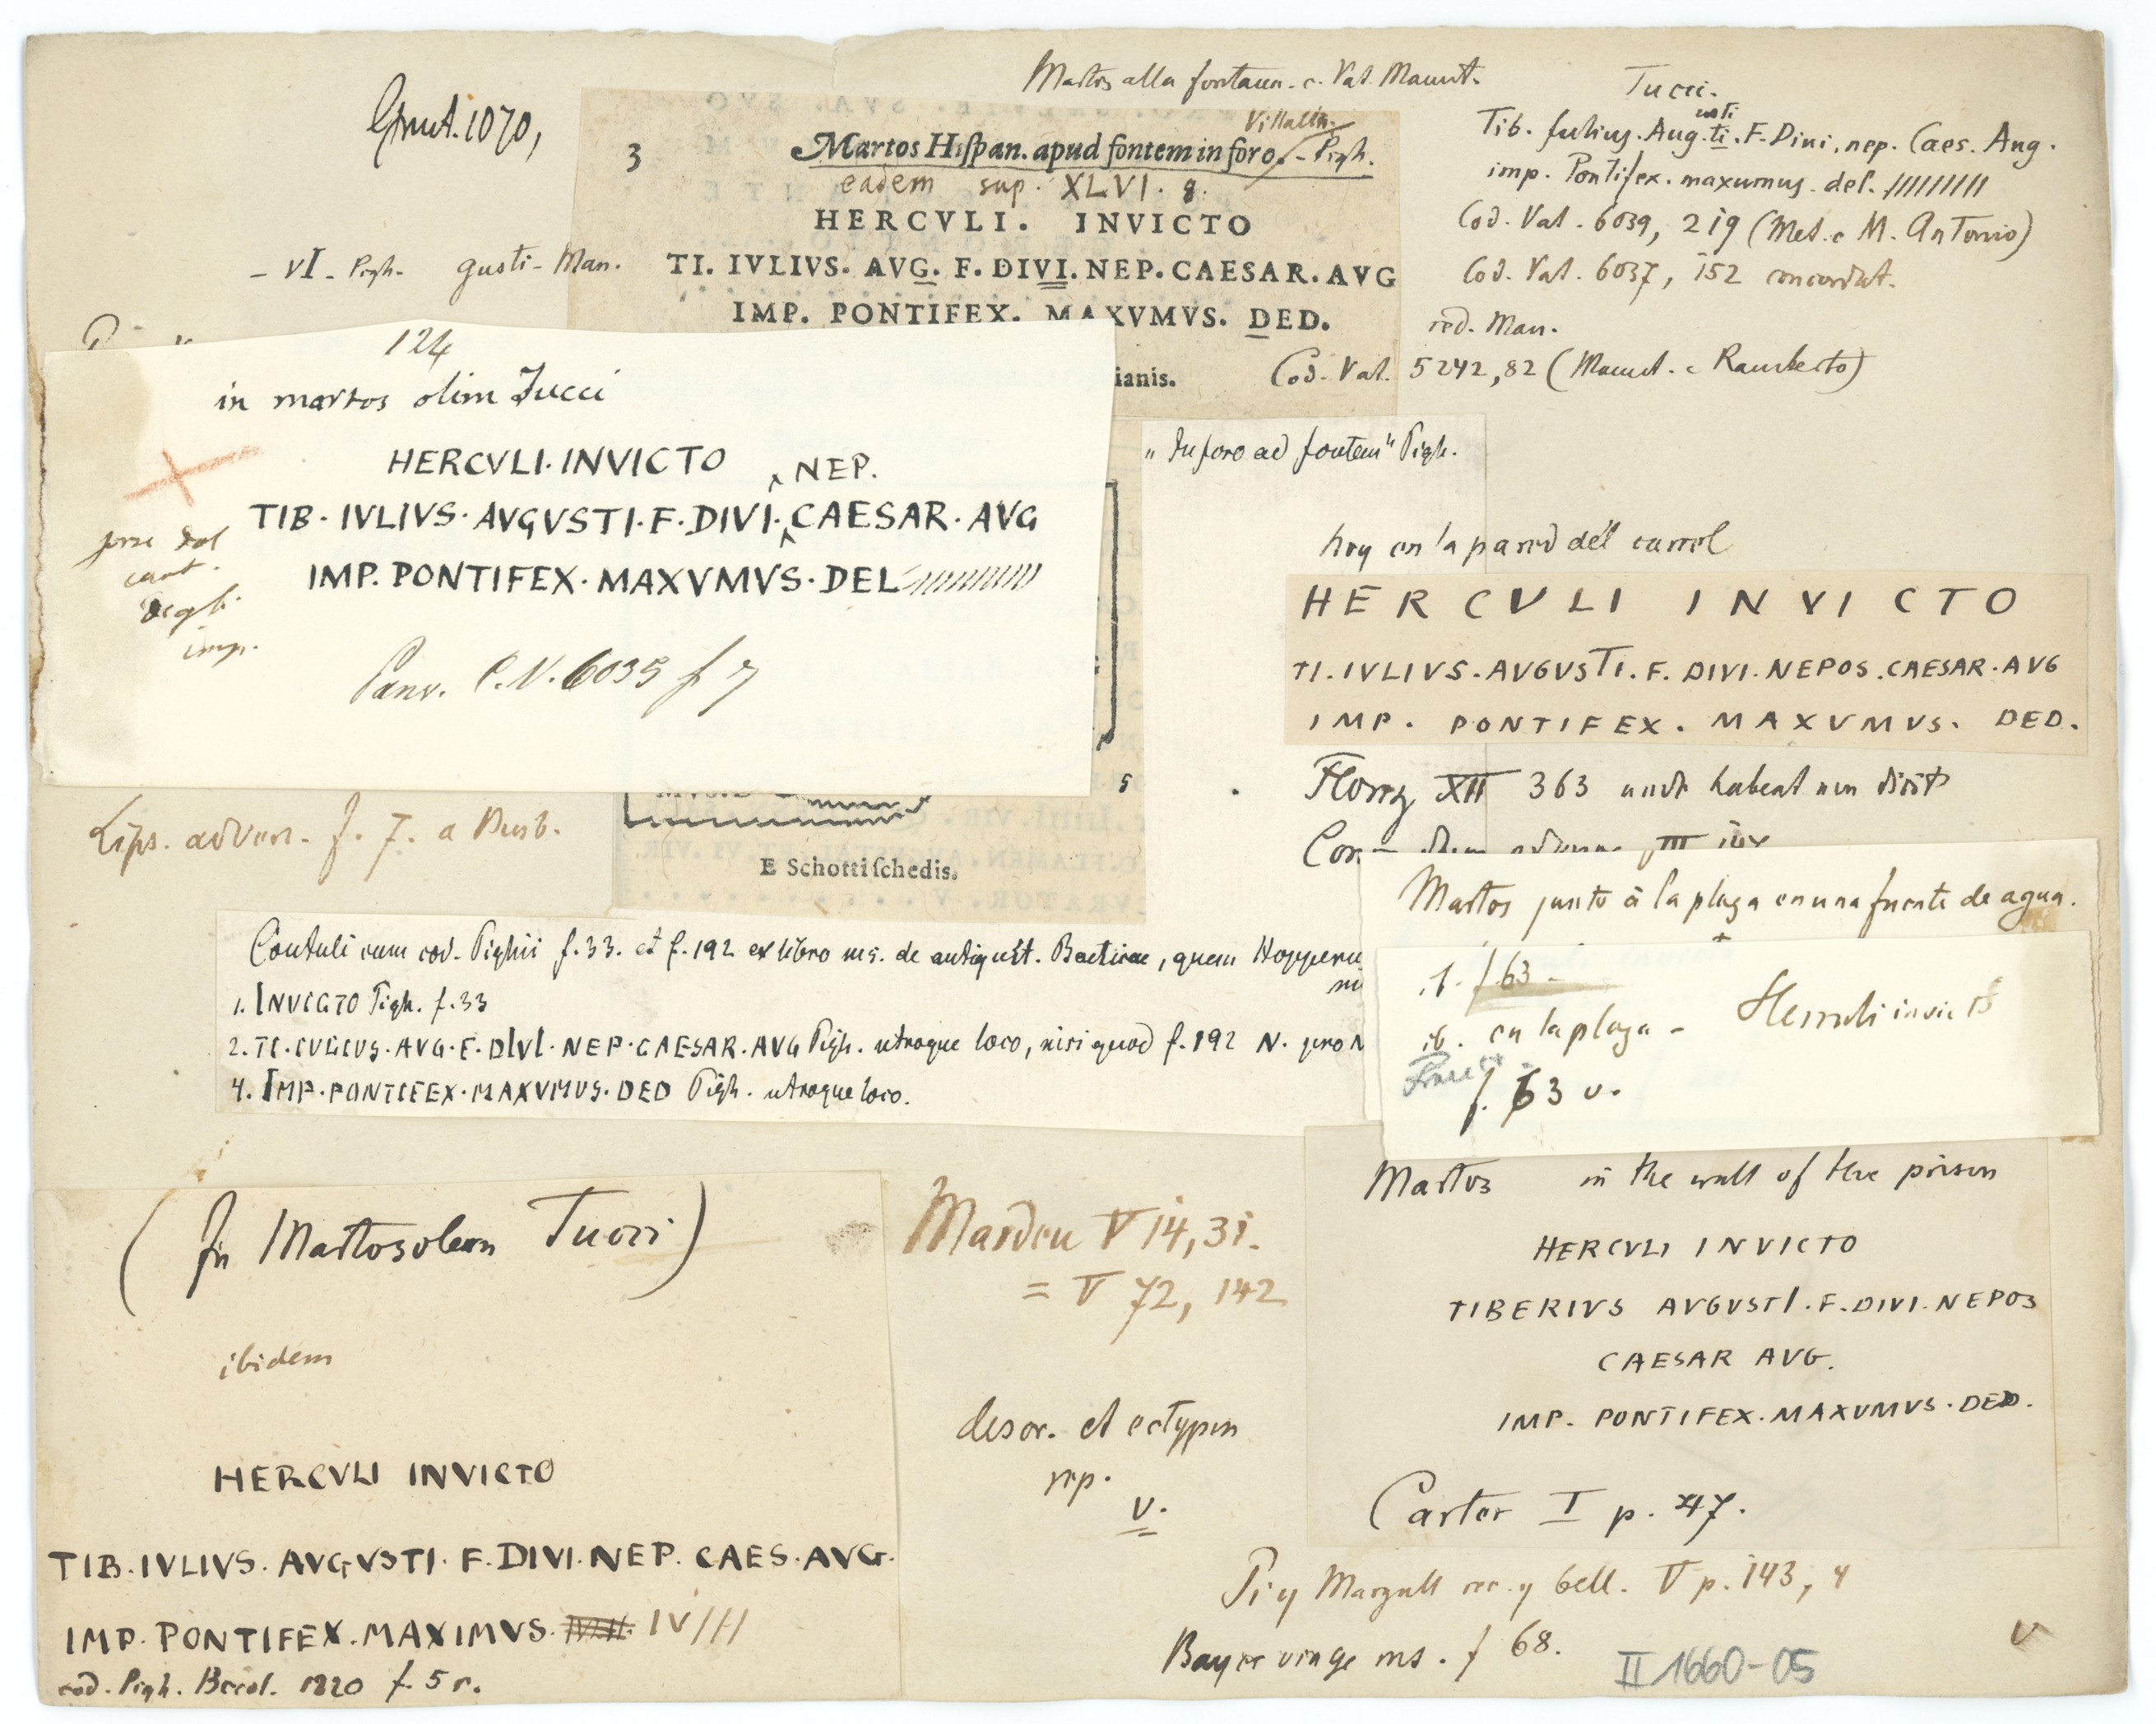 Grut. 1070,
Martos alla fontana. c. Vat. Manut.
3
Villalta.
Martos Hispan. apud fontem in foro. - Pigh.
eadem sup. XLVI. 8.
HERCVLI. INVICTO
TI. IVLIVS. AVG. F. DIVI. NEP. CAESAR. AVG
IMP. PONTIFEX. MAXVMVS. DED.
ianis.
- VI - Pigh. gusti - Man.
Tucci.
usti
Tib. Julius. Aug.ti. F. Divi. nep. Caes. Aug.
imp. Pontifex. maxumus. del. /////////
Cod. Vat. 6039, 219 (Met. c M. Antonio)
Cod. Vat. 6037, 152 concordat.
red. Man.
Cod. Vat. 5242, 82 (Manut. c Ramberto)
124
in martos olim Tucci
HERCVLI. INVICTO
NEP.
TIB. IVLIVS. AVGVSTI. F. DIVI. CAESAR. AVG
IMP. PONTIFEX. MAXVMVS. DEL//////////
cart.
degli
imp.
Panv. C. V. 6035 f 7
"In foro ad fontem" Pigh.
hoy en la pared del carcel
HERCVLI INVICTO
TI. IVLIVS. AVGVSTI. F. DIVI. NEPOS. CAESAR. AVG
IMP. PONTIFEX. MAXVMVS. DED.
Florez XII 363 unde habeat non dicit
5
Lips. advers. f. 7. a Busb.
E Schotti schedis.
Martos junto à la plaza en una fuente de agua.
Contuli cum cod. Pighii f. 33. et f. 192 ex libro ms. de antiquit. Baeticae, quem Hopperu
1. INVICTO Pigh. f. 33
2. TI. IVLIVS. AVG. F. DIVI. NEP. CAESAR. AVG Pigh. utroque loco, nisi quod f. 192 N. pro N
4. IMP. PONTIFEX. MAXVMVS. DED Pigh. utroque loco.
f. 63 -
ib. en la plaza - Herculi invicto
f. 63 v.
(In Martos olim Tucci)
ibidem
HERCVLI INVICTO
TIB. IVLIVS. AVGVSTI. F. DIVI. NEP. CAES. AVG.
IMP. PONTIFEX. MAXIMVS. IV///
cod. Pigh. Berol. 1820 f. 5 r.
Masdeu V 14, 31.
= V 72, 142
descr. et ectypon
rep.
v.
Martos in the wall of the prison
HERCVLI INVICTO
TIBERIVS AVGVSTI. F. DIVI. NEPOS
CAESAR AVG.
IMP. PONTIFEX. MAXVMVS. DED.
Carter I p. 47.
Pi y Margall rec. y bell. V p. 143, 4
Bayer viage ms. f 68.
II 1660-05
v